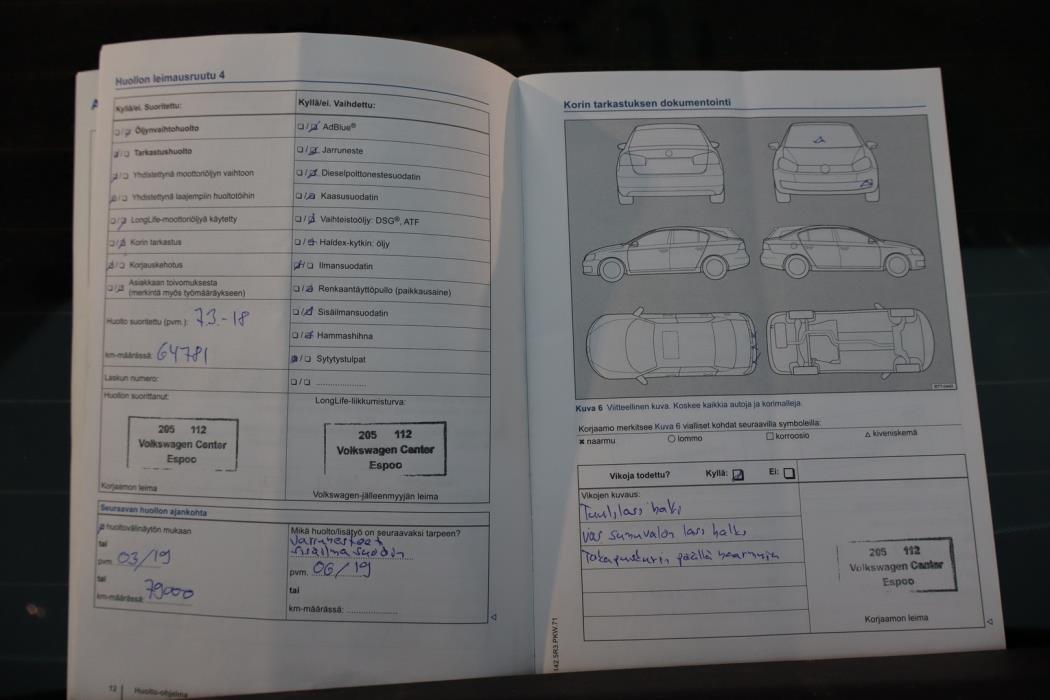 Huollon leimausruutu 4
Kyllä/ei. Suoritettu:
Öljynvaihtohuolto
Tarkastushuolto
Yhdistettynä moottoriöljyn vaihtoon
Yhdistettynä laajempiin huoltotöihin
LongLife-moottoriöljyä käytetty
Korin tarkastus
Korjauskehotus
Asiakkaan toivomuksesta
(merkintä myös työmääräykseen)
Huolto suoritettu (pvm.): 7.3.-18
km-määrässä: 64781
Laskun numero:
Huollon suorittanut:
205 112
Volkswagen Center
Espoo
Korjaamon leima
Kyllä/ei. Vaihdettu:
AdBlue®
Jarruneste
Dieselpolttonestesuodatin
Kaasusuodatin
Vaihteistoöljy: DSG®, ATF
Haldex-kytkin: öljy
Ilmansuodatin
Renkaantäyttöpullo (paikkausaine)
Sisäilmansuodatin
Hammashihna
Sytytystulpat
LongLife-liikkumisturva:
205 112
Volkswagen Center
Espoo
Volkswagen-jälleenmyyjän leima
Seuraavan huollon ajankohta
huoltovälinäytön mukaan
tai
pvm. 03/19
tai
km-määrässä: 79000
Mikä huolto/lisätyö on seuraavaksi tarpeen?
Jarrunesteet
sisäilma suodin
pvm. 06/19
tai
km-määrässä:
12 Huolto-ohjelma
Korin tarkastuksen dokumentointi
Kuva 6 Viitteellinen kuva. Koskee kaikkia autoja ja korimalleja.
Korjaamo merkitsee Kuva 6 vialliset kohdat seuraavilla symboleilla:
naarmu lommo korroosio kiveniskemä
Vikoja todettu? Kyllä: Ei:
Vikojen kuvaus:
Tuulilasi halki
vas sumuvalon lasi halki
Takapuskurin päällä naarmuja
205 112
Volkswagen Center
Espoo
Korjaamon leima
142.5R3.PKW.71